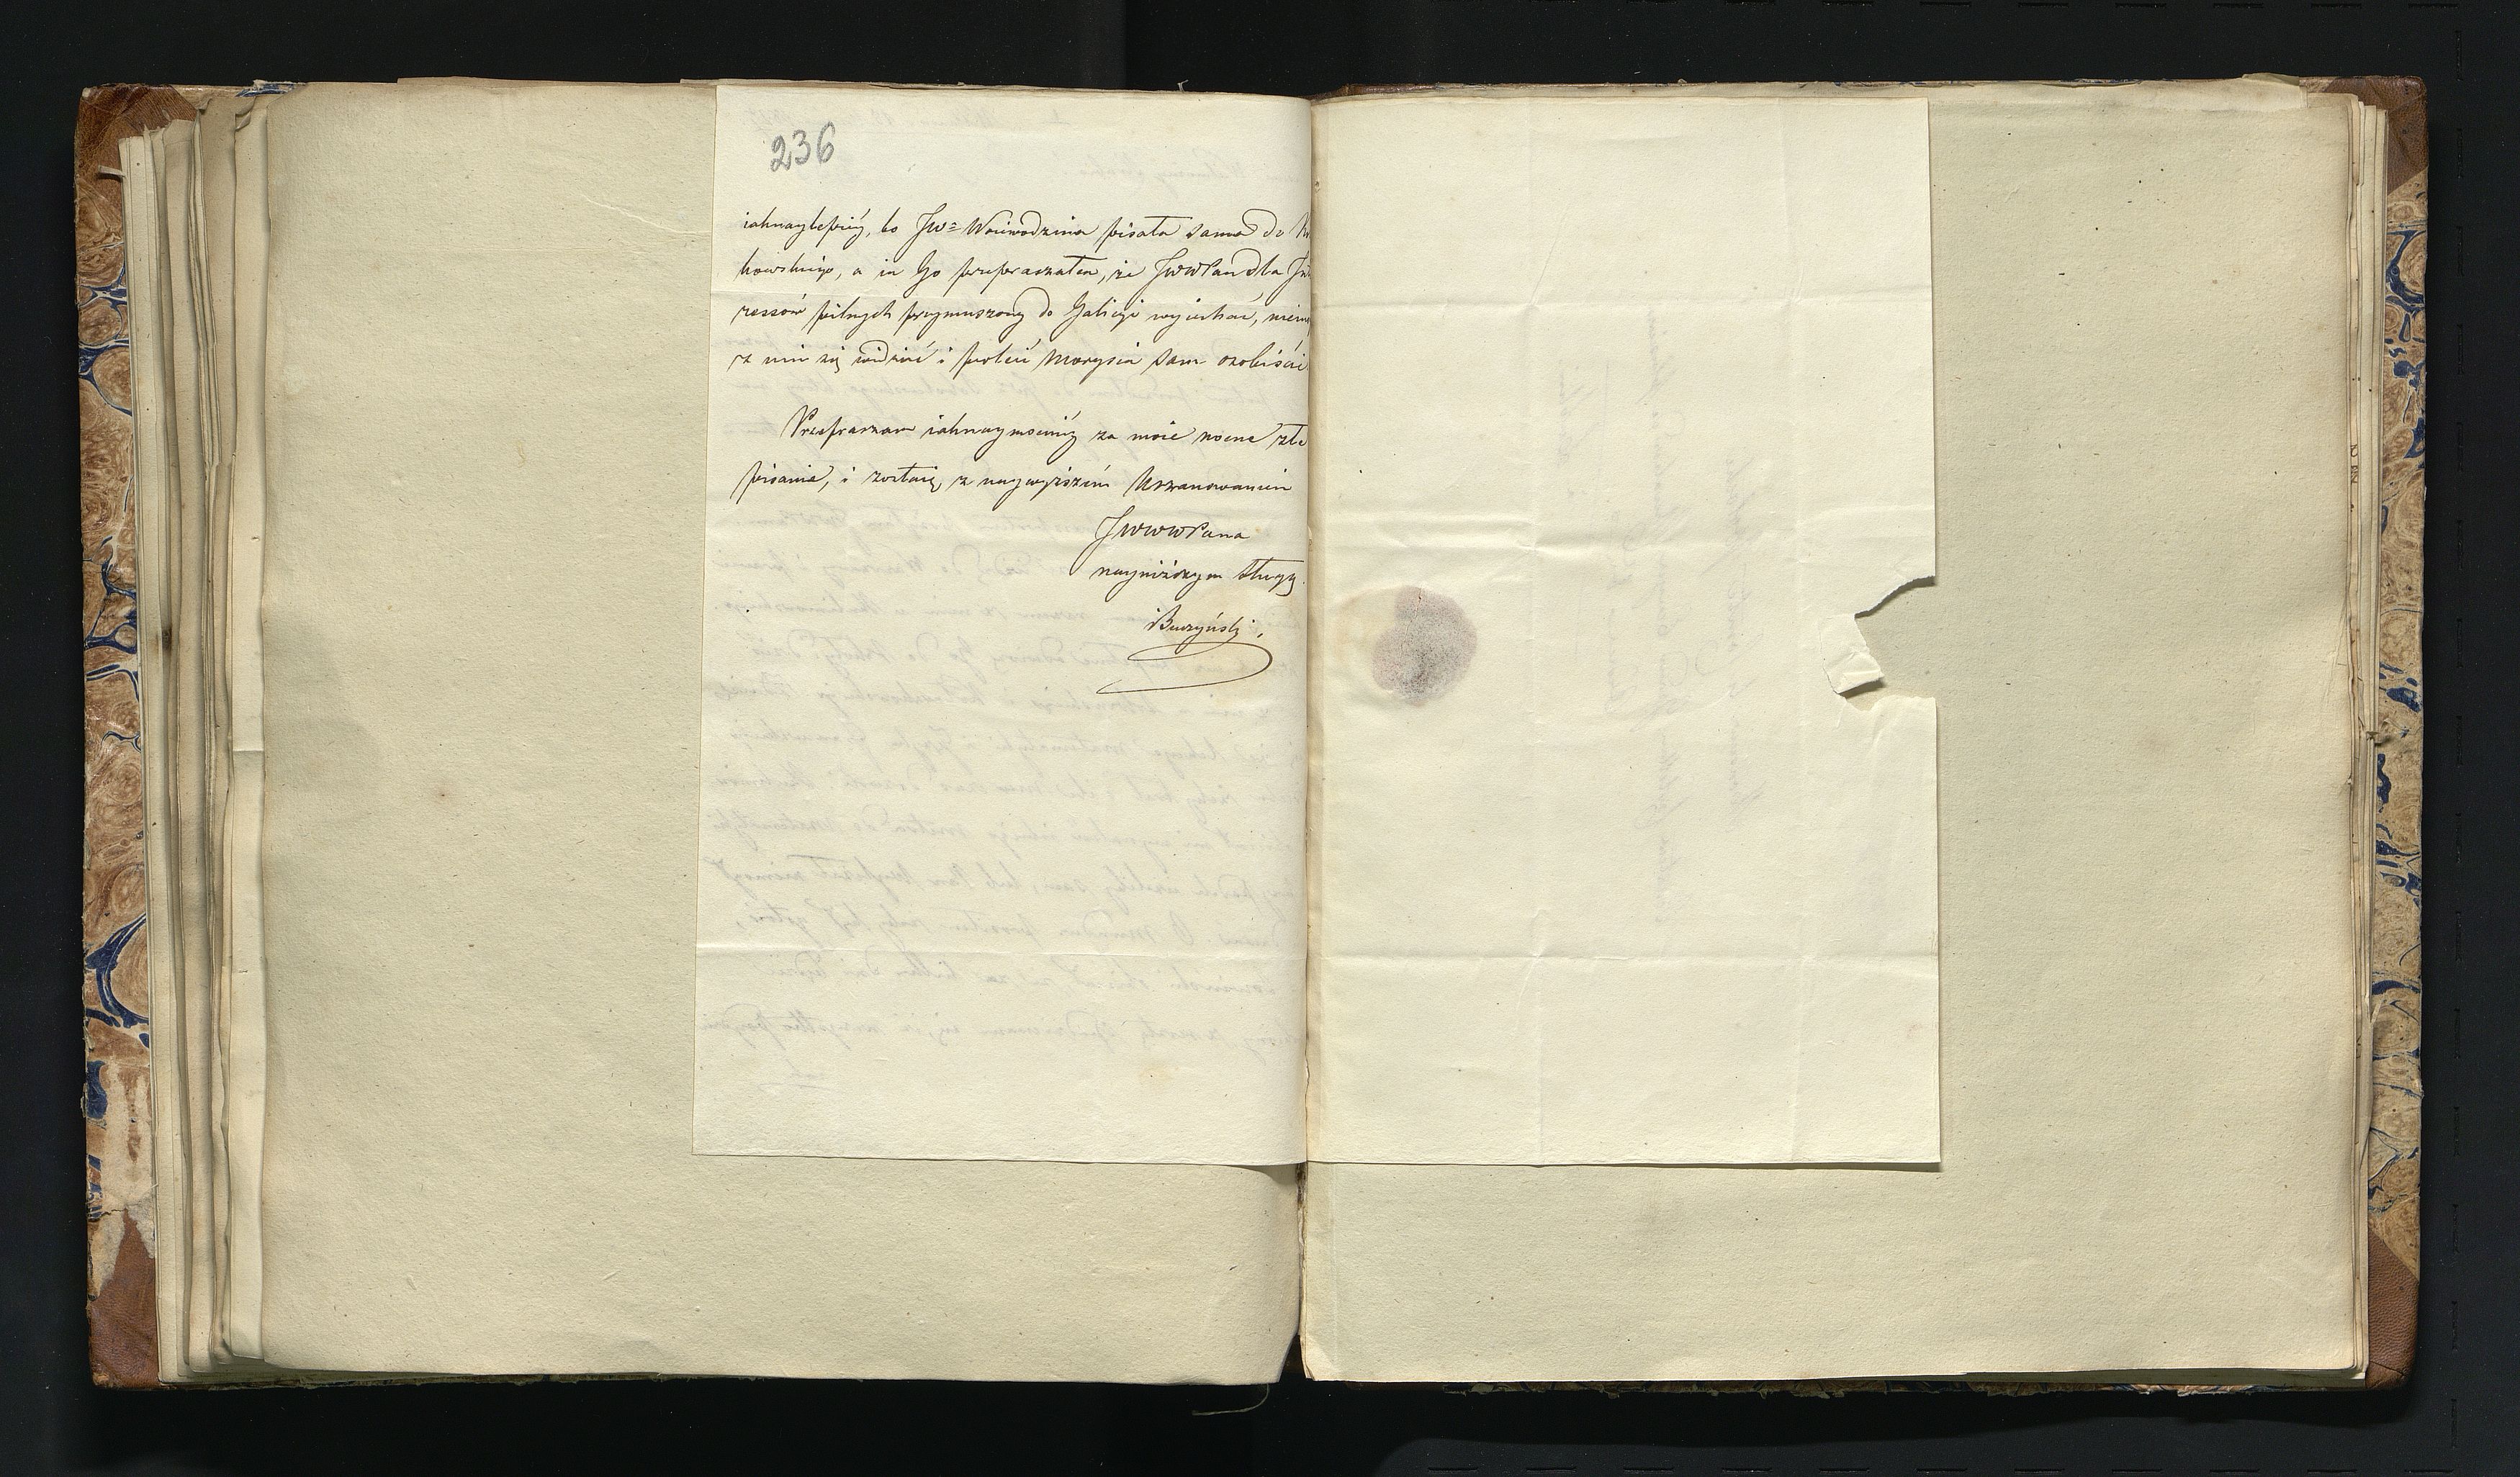 236
iaknaylepiéy, bo JW= Woiewodzina pisała sama do
kowskiego, a ia Go przepraszałem, że JWWPan dla
ressów pilnych przymuszony do Galicyi wyiechać,
z nim się widzieć i polecić Marysia sam osobiście
Przepraszam iaknaymocniéy za moie nocne złe
pisanie, i zostaię z naywyższém Uszanowaniem
JWWWPana
nayniższym sługą.
Buczyński.